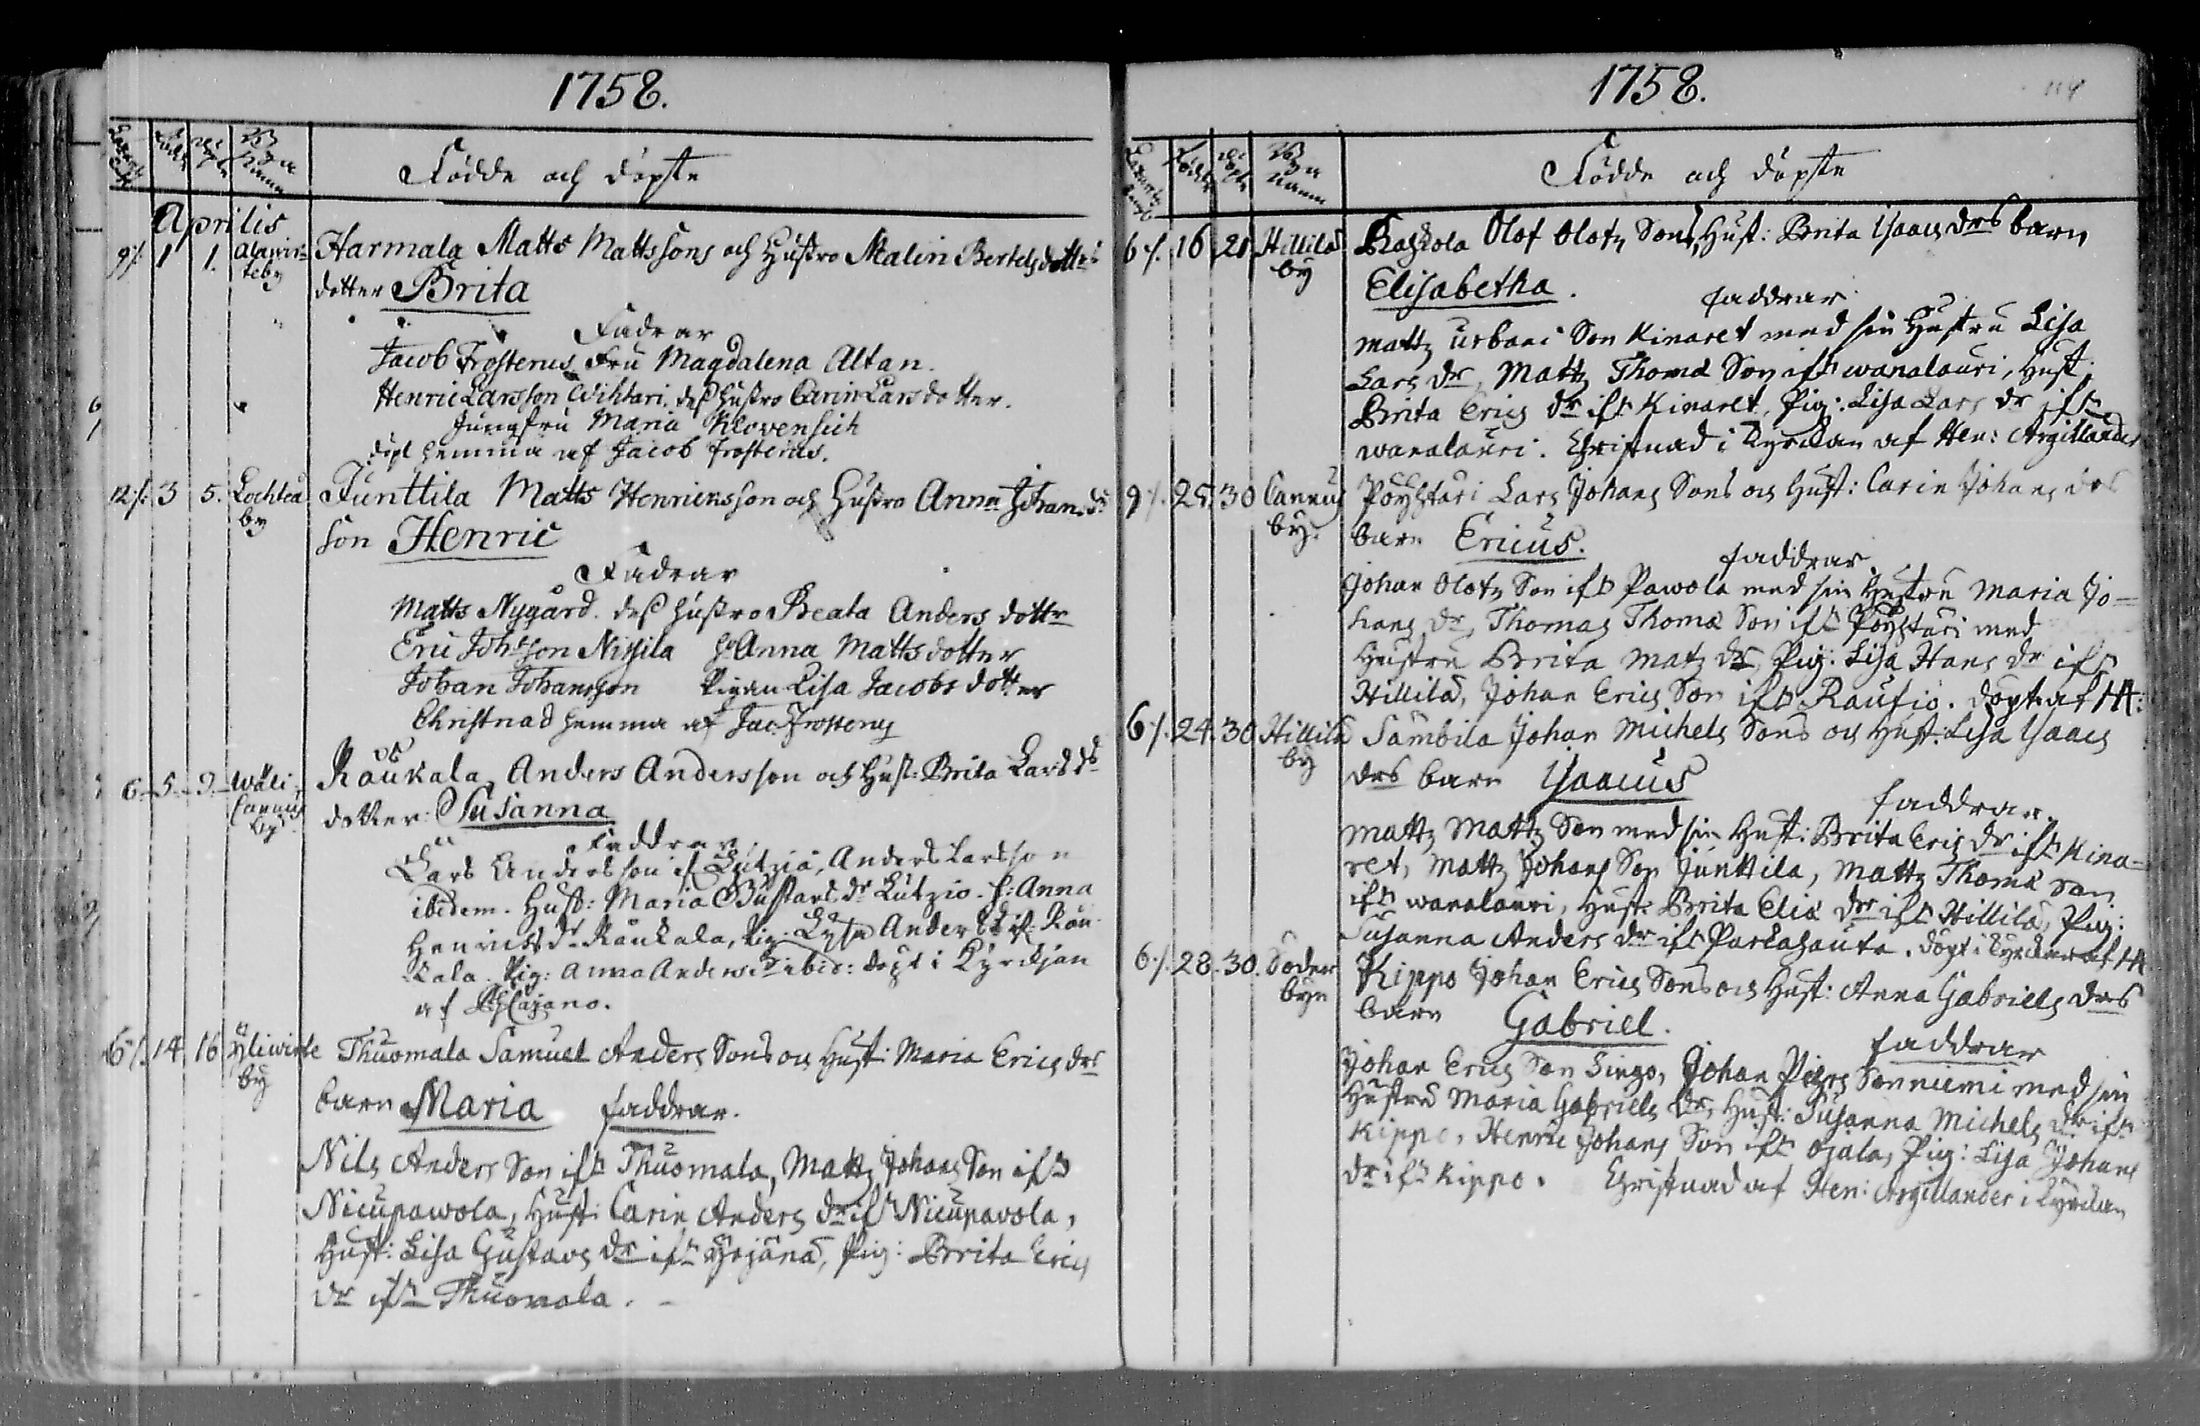 1758.
Födde och döpte
Aprilis
9/. 1 1. Alawir-
teby
Harmala Matts Mattssons och Hustro Malin Bertelsdotters
dotter Brita
Fadrar
Jacob Frosterus Fru Magdalena Altan.
Henric Larsson Wihtari, dess hustro Carin Larsdotter.
Jungfru Maria Klovensich
döpt hemma af Jacob Frosterus.
12/. 3 5. Lochteå
by
Junttila Matts Henricsson och Hustro Anna Johans dr
son Henric
Fadrar
Matts Nygård. dess hustro Beata Anders dottr
Eric Johsson Nissila H Anna Mattsdotter
Johan Johansson Pigan Lisa Jacobs dotter
Christnad hemma af Jac. Frosterus
6. 5. 9. Wäli-
Cannus
by
Räukala Anders Andersson och Hust: Brita Lars dr
dotter: Susanna
Faddrar
Lars Andersson if. Lutzio, Anders Larsson
ibidem. Hust: Maria Gustavs dr Lutzio. h: Anna
Henrics dr Räukala, Pig. Lysa Anders dr if: Räu-
kala. Pig: Anna Anders dr ibid: döpt i Kyrckjan
af Cajano.
6/. 14 16 Yliwirte
by
Thuomala Samuel Anders Sons och Hust: Maria Erics drs
barn Maria faddrar.
Nils Anders Son ifr. Thuomala, Matts Johans Son ifr
Nicupawola, Hust: Carin Anders dr ifr Nicupavola,
Hust: Lisa Gustavs dr ifr Yrjänä, Pig: Brita Erics
dr ifr Thuomala.
1758.
114
Födde och döpte
6/. 16 21 Hillilä
by
Kaskola Olof Olofs Sons, Hust: Brita Isaacs drs barn
Elisabetha.
faddrar
Matts Urbani Son Kinaret med sin Hustru Lisa
Lars dr, Matts Thomæ Son ifr wanalauri, Hust:
Brita Erics dr ifr Kinaret, Pig: Lisa Lars dr ifr
wanalauri. Christnad i Kyrckan af Hen: Argillander
9/. 25. 30 Cannus
by.
Pöyhtari Lars Johans Sons och Hust: Carin Johans drs
barn Ericus.
faddrar
Johan Olofs Son ifr Pawola med sin Hustru Maria Jo-
hans dr, Thomas Thomæ Son ifr Pöyhtari med
Hustru Brita Mats dr, Pig: Lisa Hans dr ifr
Hillilä, Johan Erics Son ifr Raufio. döpt af HA:
6/. 24. 30 Hillilä
by
Sämbilä Johan Michels Sons och Hust: Lisa Isaacs
drs barn Isacus
faddrar
Matts Matts Son med sin Hust: Brita Erics dr ifr Kina-
ret, Matts Johans Son Junttila, Matts Thomæ Son
ifr wanalauri, Hust: Brita Eliæ dr ifr Hillilä, Pig:
Susanna Anders dr ifr Parkahauta. döpt i Kyrckan af HA
6/. 28. 30. Söder
byn
Kippo Johan Erics Sons och Hust: Anna Gabriels drs
barn Gabriel.
faddrar
Johan Erics Son Singo, Johan Pehrs Son niemi med sin
Hustru Maria Gabriels dr, Hust: Susanna Michels dr ifr
Kippo, Henric Johans Son ifr Ojala, Pig: Lisa Johans
dr ifr Kippo. Christnad af Hen: Argillander i Kyrckan